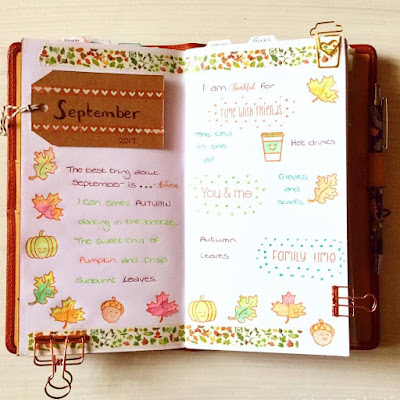 September
2017
The best thing about
September is....
I can smell AUTUMN
dancing in the breeze
The sweet chill of
Pumpkin and crisp
sunburnt leaves.
I am thankful for
TIME WITH FRIENDS
The chill
in the
air
Hot drinks
You & me
Gloves
and
scarfs
Autumn
Leaves
FAMILY TIME